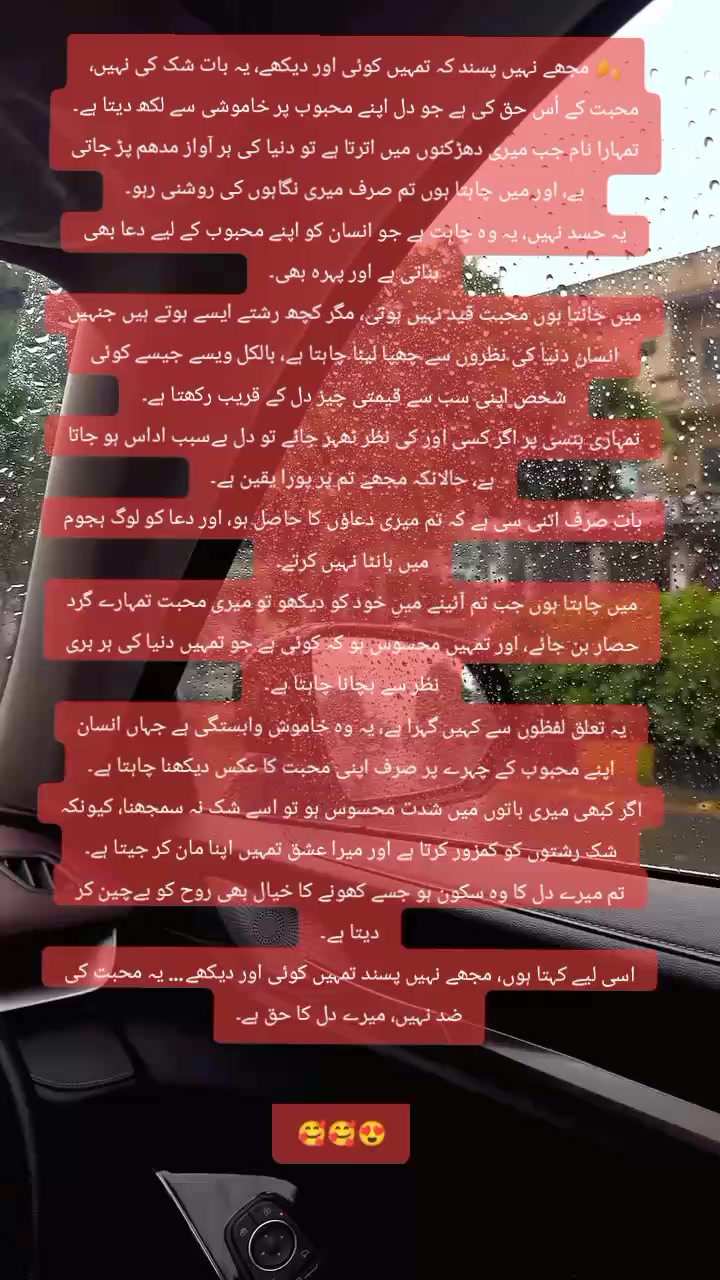 🍂 مجھے نہیں پسند کہ تمہیں کوئی اور دیکھے، یہ بات شک کی نہیں،
محبت کے اُس حق کی ہے جو دل اپنے محبوب پر خاموشی سے لکھ دیتا ہے۔
تمہارا نام جب میری دھڑکنوں میں اترتا ہے تو دنیا کی ہر آواز مدھم پڑ جاتی
ہے، اور میں چاہتا ہوں تم صرف میری نگاہوں کی روشنی رہو۔
یہ حسد نہیں، یہ وہ چاہت ہے جو انسان کو اپنے محبوب کے لیے دعا بھی
بناتی ہے اور پہرہ بھی۔
میں جانتا ہوں محبت قید نہیں ہوتی، مگر کچھ رشتے ایسے ہوتے ہیں جنہیں
انسان دنیا کی نظروں سے چھپا لینا چاہتا ہے، بالکل ویسے جیسے کوئی
شخص اپنی سب سے قیمتی چیز دل کے قریب رکھتا ہے۔
تمہاری ہنسی پر اگر کسی اور کی نظر ٹھہر جائے تو دل بےسبب اداس ہو جاتا
ہے، حالانکہ مجھے تم پر پورا یقین ہے۔
بات صرف اتنی سی ہے کہ تم میری دعاؤں کا حاصل ہو، اور دعا کو لوگ ہجوم
میں بانٹا نہیں کرتے۔
میں چاہتا ہوں جب تم آئینے میں خود کو دیکھو تو میری محبت تمہارے گرد
حصار بن جائے، اور تمہیں محسوس ہو کہ کوئی ہے جو تمہیں دنیا کی ہر بری
نظر سے بچانا چاہتا ہے۔
یہ تعلق لفظوں سے کہیں گہرا ہے، یہ وہ خاموش وابستگی ہے جہاں انسان
اپنے محبوب کے چہرے پر صرف اپنی محبت کا عکس دیکھنا چاہتا ہے۔
اگر کبھی میری باتوں میں شدت محسوس ہو تو اسے شک نہ سمجھنا، کیونکہ
شک رشتوں کو کمزور کرتا ہے اور میرا عشق تمہیں اپنا مان کر جیتا ہے۔
تم میرے دل کا وہ سکون ہو جسے کھونے کا خیال بھی روح کو بےچین کر
دیتا ہے۔
اسی لیے کہتا ہوں، مجھے نہیں پسند تمہیں کوئی اور دیکھے... یہ محبت کی
ضد نہیں، میرے دل کا حق ہے۔
😍🥰🥰